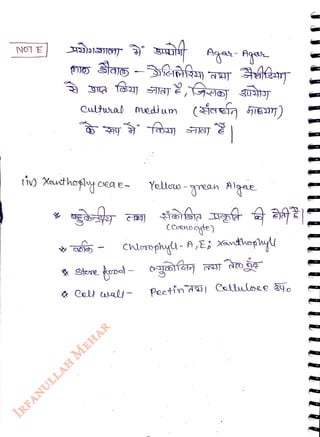 NOTE
प्रयोगशाला में उपयोगी Agar-Agar
लाल शैवाल - ग्रेसिलेरिया तथा जेलीडियम
से प्राप्त किया जाता है, जिसका उपयोग
Cultural medium (संवर्धन माध्यम)
के रूप में किया जाता है |
iv) Xanthophyceae- Yellow-green Algae
* बहुकेन्द्रीय तथा संकोशिक प्रकृति की होती है |
(Coenocyte)
* वर्णक - Chlorophyll-A, E; Xanthophyll
* Store food - ल्युकोसिन तथा तेल बूँद
* Cell wall- Pectin तथा Cellulose
IRFANULLAH MEHAR